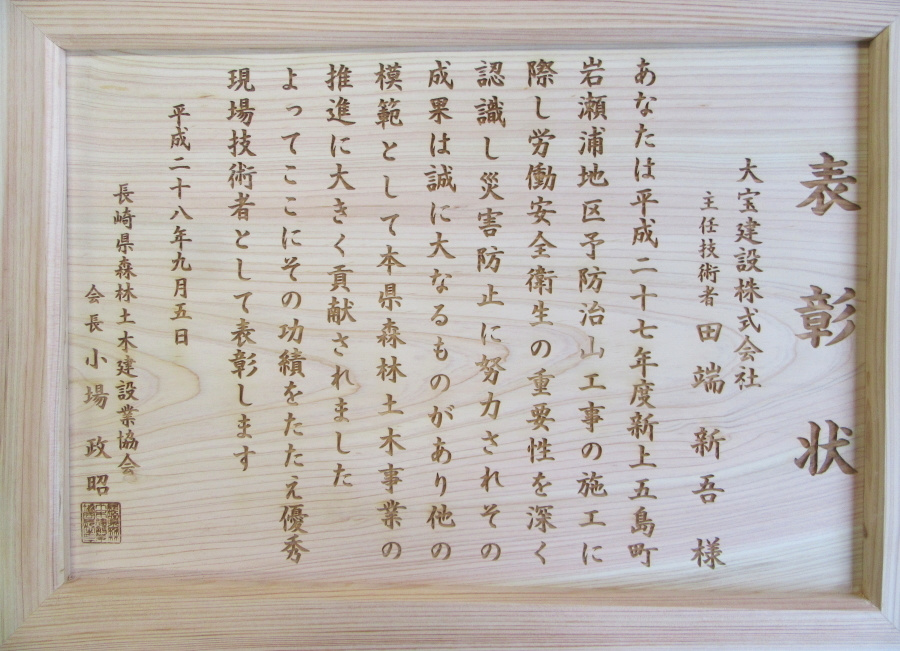 表彰状
大宝建設株式会社
主任技術者 田端新吾様
あなたは平成二十七年度新上五島町
岩瀬浦地区予防治山工事の施工に
際し労働安全衛生の重要性を深く
認識し災害防止に努力されその
成果は誠に大なるものがあり他の
模範として本県森林土木事業の
推進に大きく貢献されました
よってここにその功績をたたえ優秀
現場技術者として表彰します
平成二十八年九月五日
長崎県森林土木建設業協会
会長 小場政昭